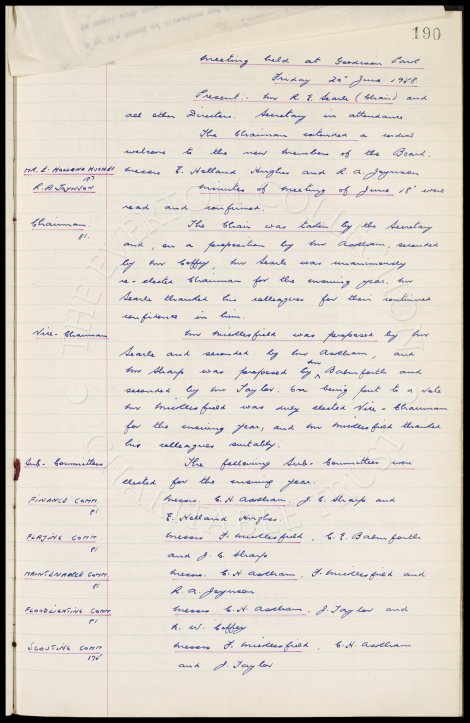 190
Meeting held at Goodison Park
Friday 20th June 1958
Present:- Mr R. E. Searle (Chair) and
all other Directors. Secretary in attendance.
The Chairman extended a cordial
welcome to the new members of the Board.
MR. E. HOLLAND HUGHES
Messrs E. Holland Hughes and R. A. Joynson
R. A. JOYNSON
Minutes of meeting of June 18th were
read and confirmed.
Chairman.
81.
The Chair was taken by the Secretary
and, on a proposition by Mr Askham, seconded
by Mr Coffey, Mr Searle was unanimously
re-elected Chairman for the ensuing year. Mr
Searle thanked his colleagues for their continued
confidence in him.
Vice-Chairman
Mr Micklesfield was proposed by Mr
Searle and seconded by Mr Askham, and
Mr Sharp was proposed by Mr Balmforth and
seconded by Mr Taylor. On being put to a vote
Mr Micklesfield was duly elected Vice-Chairman
for the ensuing year, and Mr Micklesfield thanked
his colleagues suitably.
Sub-Committees
The following Sub-Committees were
elected for the ensuing year.
FINANCE COMM.
81
Messrs. C. H. Askham, J. C. Sharp and
E. Holland Hughes.
PLAYING COMM
81
Messrs F. Micklesfield, C. E. Balmforth
and J. C. Sharp
MAINTENANCE COMM.
81
Messrs. C. H. Askham, F. Micklesfield and
R. A. Joynson
FLOODLIGHTING COMM
81
Messrs C. H. Askham, J. Taylor and
R. W. Coffey
SCOUTING COMM
Messrs F. Micklesfield, C. H. Askham
and J. Taylor